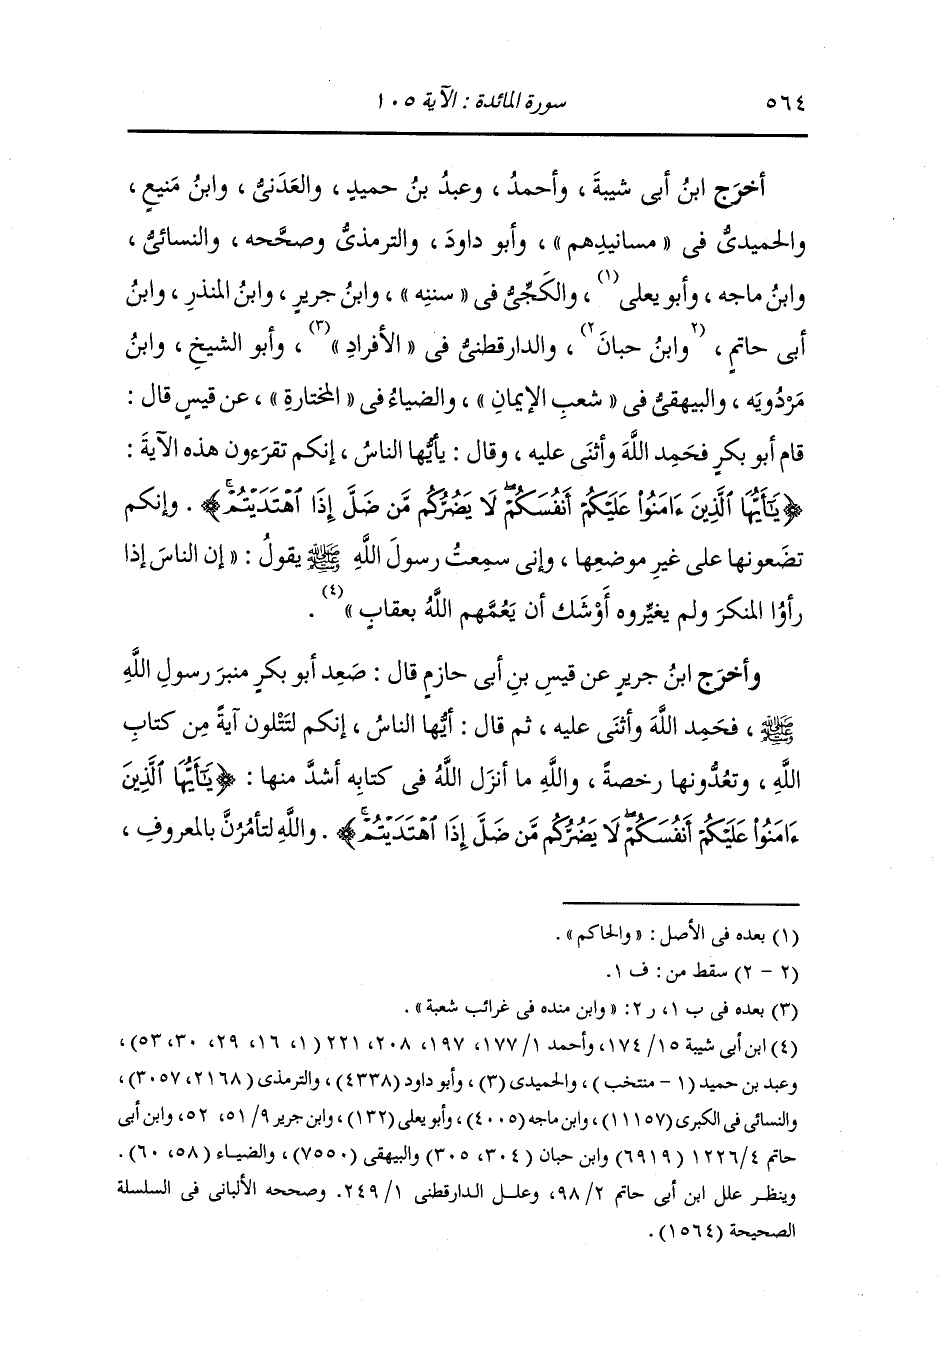 ٥٦٤ سورة المائدة : الآية ١٠٥
أخرَج ابنُ أبى شيبةَ ، وأحمدُ ، وعبدُ بنُ حميدٍ ، والعَدَنىُّ ، وابنُ مَنيعٍ ،
والحميدىُّ فى « مسانيدِهم » ، وأبو داودَ ، والترمذىُّ وصحَّحه ، والنسائىُّ ،
وابنُ ماجه ، وأبو يعلى(١) ، والكَجِّىُّ فى « سننِه » ، وابنُ جريرٍ ، وابنُ المنذرِ ، وابنُ
أبى حاتمٍ ، (٢ وابنُ حبانَ ٢) ، والدارقطنىُّ فى « الأفرادِ »(٣) ، وأبو الشيخِ ، وابنُ
مَرْدُويَه ، والبيهقىُّ فى « شعبِ الإيمانِ » ، والضياءُ فى « المختارةِ » ، عن قيسٍ قال :
قام أبو بكرٍ فحَمِد اللَّهَ وأثنَى عليه ، وقال : يأيُّها الناسُ ، إنكم تقرَءون هذه الآيةَ :
﴿يَٰٓأَيُّهَا ٱلَّذِينَ ءَامَنُوا۟ عَلَيْكُمْ أَنفُسَكُمْۖ لَا يَضُرُّكُم مَّن ضَلَّ إِذَا ٱهْتَدَيْتُمْۚ﴾ . وإنكم
تضَعونها على غيرِ موضعِها ، وإنى سمِعتُ رسولَ اللَّهِ ﷺ يقولُ : « إن الناسَ إذا
رأَوُا المنكرَ ولم يغيِّروه أَوْشَك أن يَعُمَّهم اللَّهُ بعقابٍ »(٤) .
وأخرَج ابنُ جريرٍ عن قيسِ بنِ أبى حازمٍ قال : صَعِد أبو بكرٍ منبرَ رسولِ اللَّهِ
ﷺ ، فحَمِد اللَّهَ وأثنَى عليه ، ثم قال : أيُّها الناسُ ، إنكم لتَتْلون آيةً مِن كتابِ
اللَّهِ ، وتعُدُّونها رخصةً ، واللَّهِ ما أنزَل اللَّهُ فى كتابِه أشدَّ منها : ﴿يَٰٓأَيُّهَا ٱلَّذِينَ
ءَامَنُوا۟ عَلَيْكُمْ أَنفُسَكُمْۖ لَا يَضُرُّكُم مَّن ضَلَّ إِذَا ٱهْتَدَيْتُمْۚ﴾ . واللَّهِ لتأمُرُنَّ بالمعروفِ ،
(١) بعده فى الأصل : « والحاكم » .
(٢ - ٢) سقط من : ف ١.
(٣) بعده فى ب ١، ر ٢: « وابن منده فى غرائب شعبة » .
(٤) ابن أبى شيبة ١٥/ ١٧٤، وأحمد ١/ ١٧٧، ١٩٧، ٢٠٨، ٢٢١ (١، ١٦، ٢٩، ٣٠، ٥٣) ،
وعبد بن حميد (١ - منتخب) ، والحميدى (٣) ، وأبو داود (٤٣٣٨) ، والترمذى (٢١٦٨، ٣٠٥٧) ،
والنسائى فى الكبرى (١١١٥٧) ، وابن ماجه (٤٠٠٥) ، وأبو يعلى (١٣٢) ، وابن جرير ٩/ ٥١، ٥٢، وابن أبى
حاتم ٤/ ١٢٢٦ (٦٩١٩) وابن حبان (٣٠٤، ٣٠٥) والبيهقى (٧٥٥٠) ، والضياء (٥٨، ٦٠) .
وينظر علل ابن أبى حاتم ٢/ ٩٨، وعلل الدارقطنى ١/ ٢٤٩. وصححه الألبانى فى السلسلة
الصحيحة (١٥٦٤) .